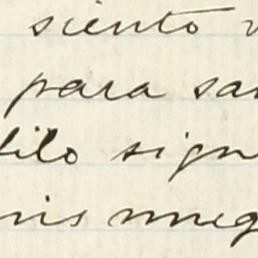 siento
para sa
tilo sign
mis mueq